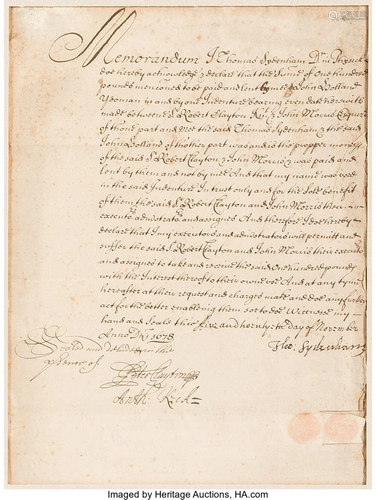 Memorandum I Thomas Sydenham Dr in Physick
doe hereby acknowledge & declare that the Sume of One hundred
pounds mencioned to be paid and lent by me & John Holland
Yeoman in and by one Indenture bearing even date herewith
made between Sr Robert Clayton Knt & John Morris Esquire
of th'one part and Me the said Thomas Sydenham & the said
John Holland of th'other part was and is the propper moneys
of the said Sr Robert Clayton & John Morris & was paid and
lent by them and not by me And that my name was used
in the said Indenture In trust only and for the sole benefit
of them the said Sr Robert Clayton and John Morris their
executrs administratrs and assignes And therefore I doe hereby
declare that I my executors and administrators will permitt and
suffer the said Sr Robert Clayton and John Morris their executrs
and assignes to take and receive the said One hundred pounds
with the Interest thereof to their owne use And at any tyme
hereafter at their request and charges make and doe any further
act for the better enabling them soe to doe Witnesse my
hand and Seale this five and twentyeth day of November
Anno Dni 1678
Tho: Sydenham
Sealed and delivered in the
presence of
Peter Clayton
Anth: Keck
Imaged by Heritage Auctions, HA.com